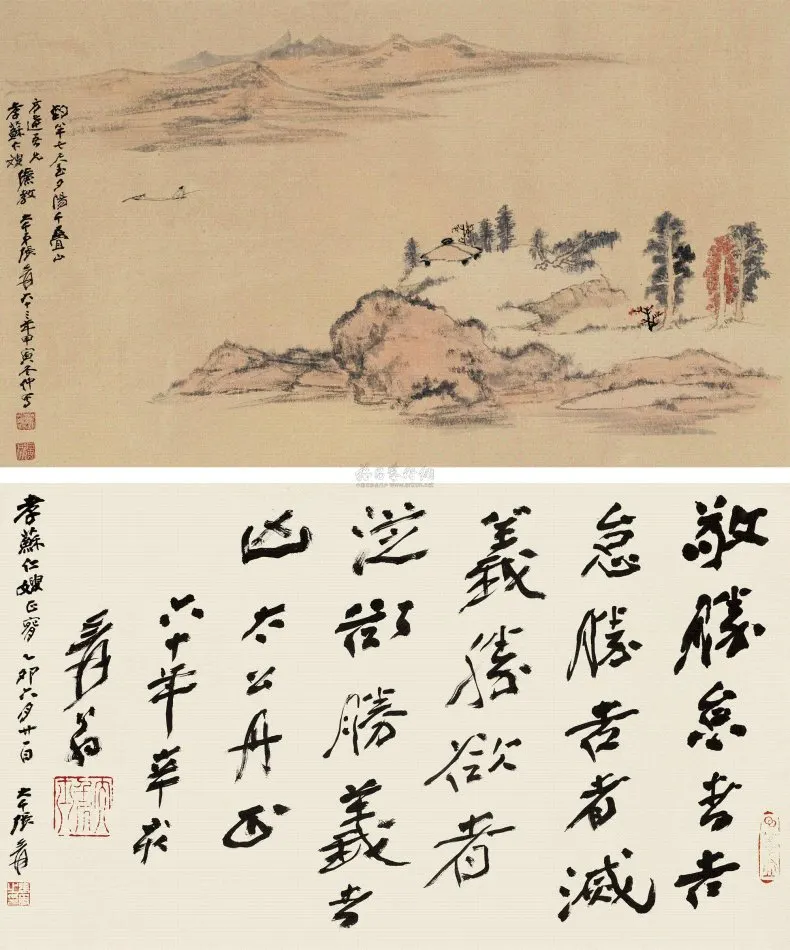 釣竿七尺玉夕陽千疊山
方進吾兄
孝蘇大嫂儷教 大千弟張爰六十三年甲寅冬仲寫
敬勝怠者吉
怠勝吉者滅
義勝欲者
從欲勝義者
凶太公丹書
六十年辛亥
爰翁
孝蘇仁嫂正 乙卯六月廿一日 大千張爰